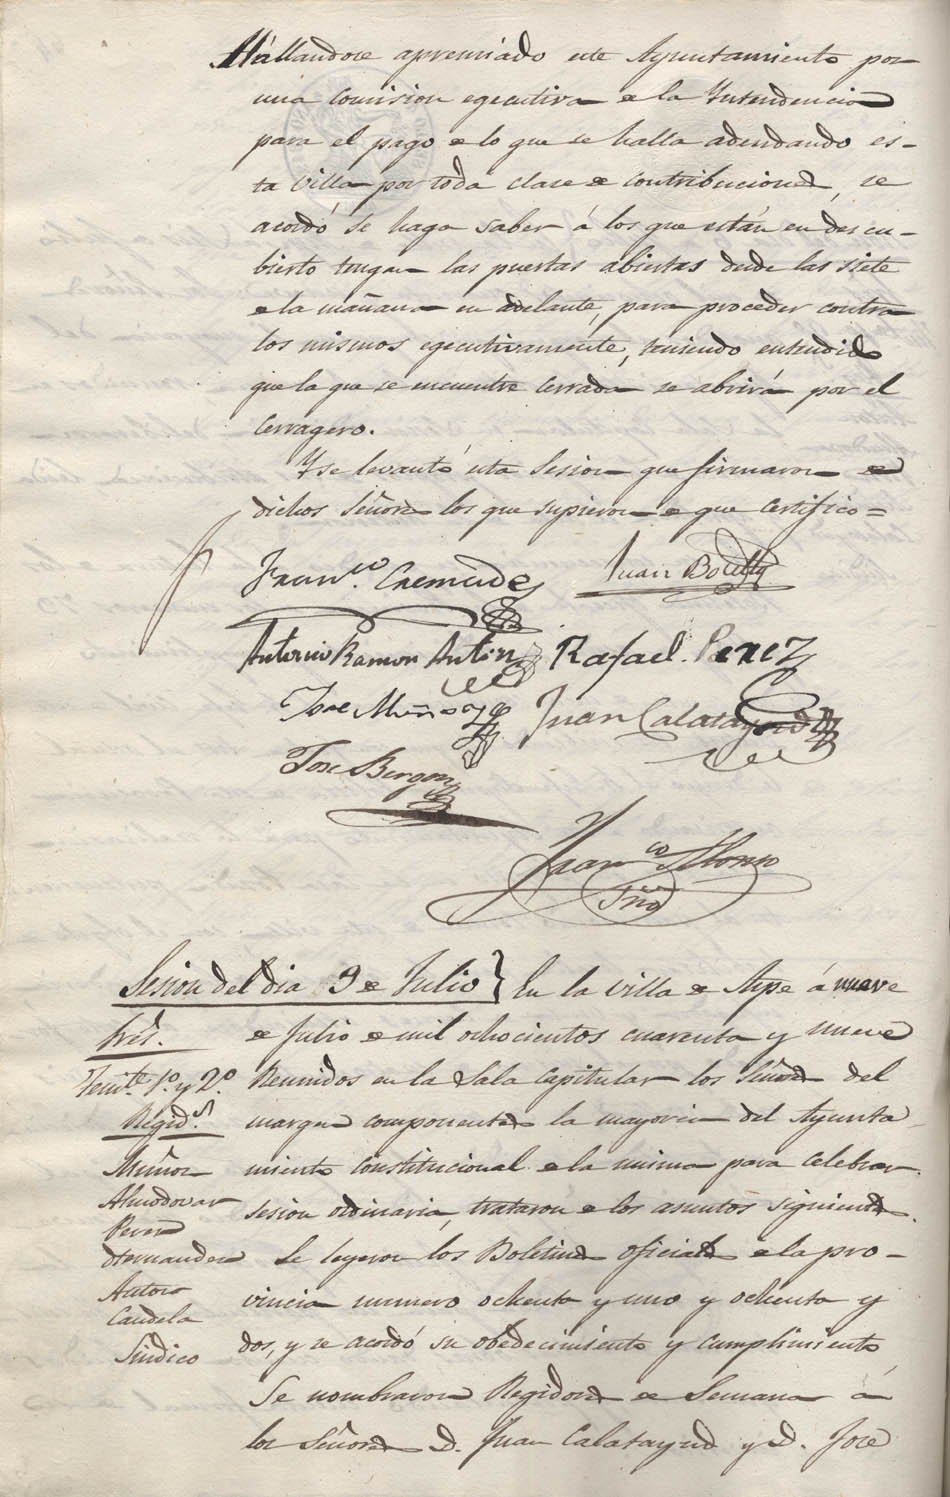 Hállandose apremiado este Ayuntamiento por
una comision egecutiva de la Yntendencia
para el pago de lo que se halla adeudando es-
ta villa por toda clase de contribuciones, se
acordó se haga saber á los que están en descu-
bierto tengan las puertas abiertas desde las siete
de la mañana en adelante, para proceder contra
los mismos egecutivamente, teniendo entendido
que la que se encuentre cerrada se abrirá por el
cerragero.
Y se levantó esta Sesion que firmaron
dichos Señores los que supieron de que certifico=
Franco. Cremades Juan Botella
Antonio Ramon Antón Rafael Perez
Jose Muñoz Juan Calatayud
Jose Bergon
Franco Alonso
Srio
Sesion del dia 9 de Julio } En la villa de Aspe á nueve
Sres. de Julio de mil ochocientos cuarenta y nueve
Tente. 1º. y 2º. Reunidos en la Sala Capitular los Señores del
Regids. margen componentes la mayoria del Ayunta
Muñoz miento Constitucional de la misma para celebrar
Almodovar sesion ordinaria, trataron de los asuntos siguientes.
Perez
Hernandez Se leyeron los Boletines oficiales de la pro-
Antón vincia numero ochenta y uno y ochenta y
Candela
Sindico dos, y se acordó su obedecimiento y cumplimiento
Se nombraron Regidores de Semana á
los Señores D. Juan Calatayud y D. Jose